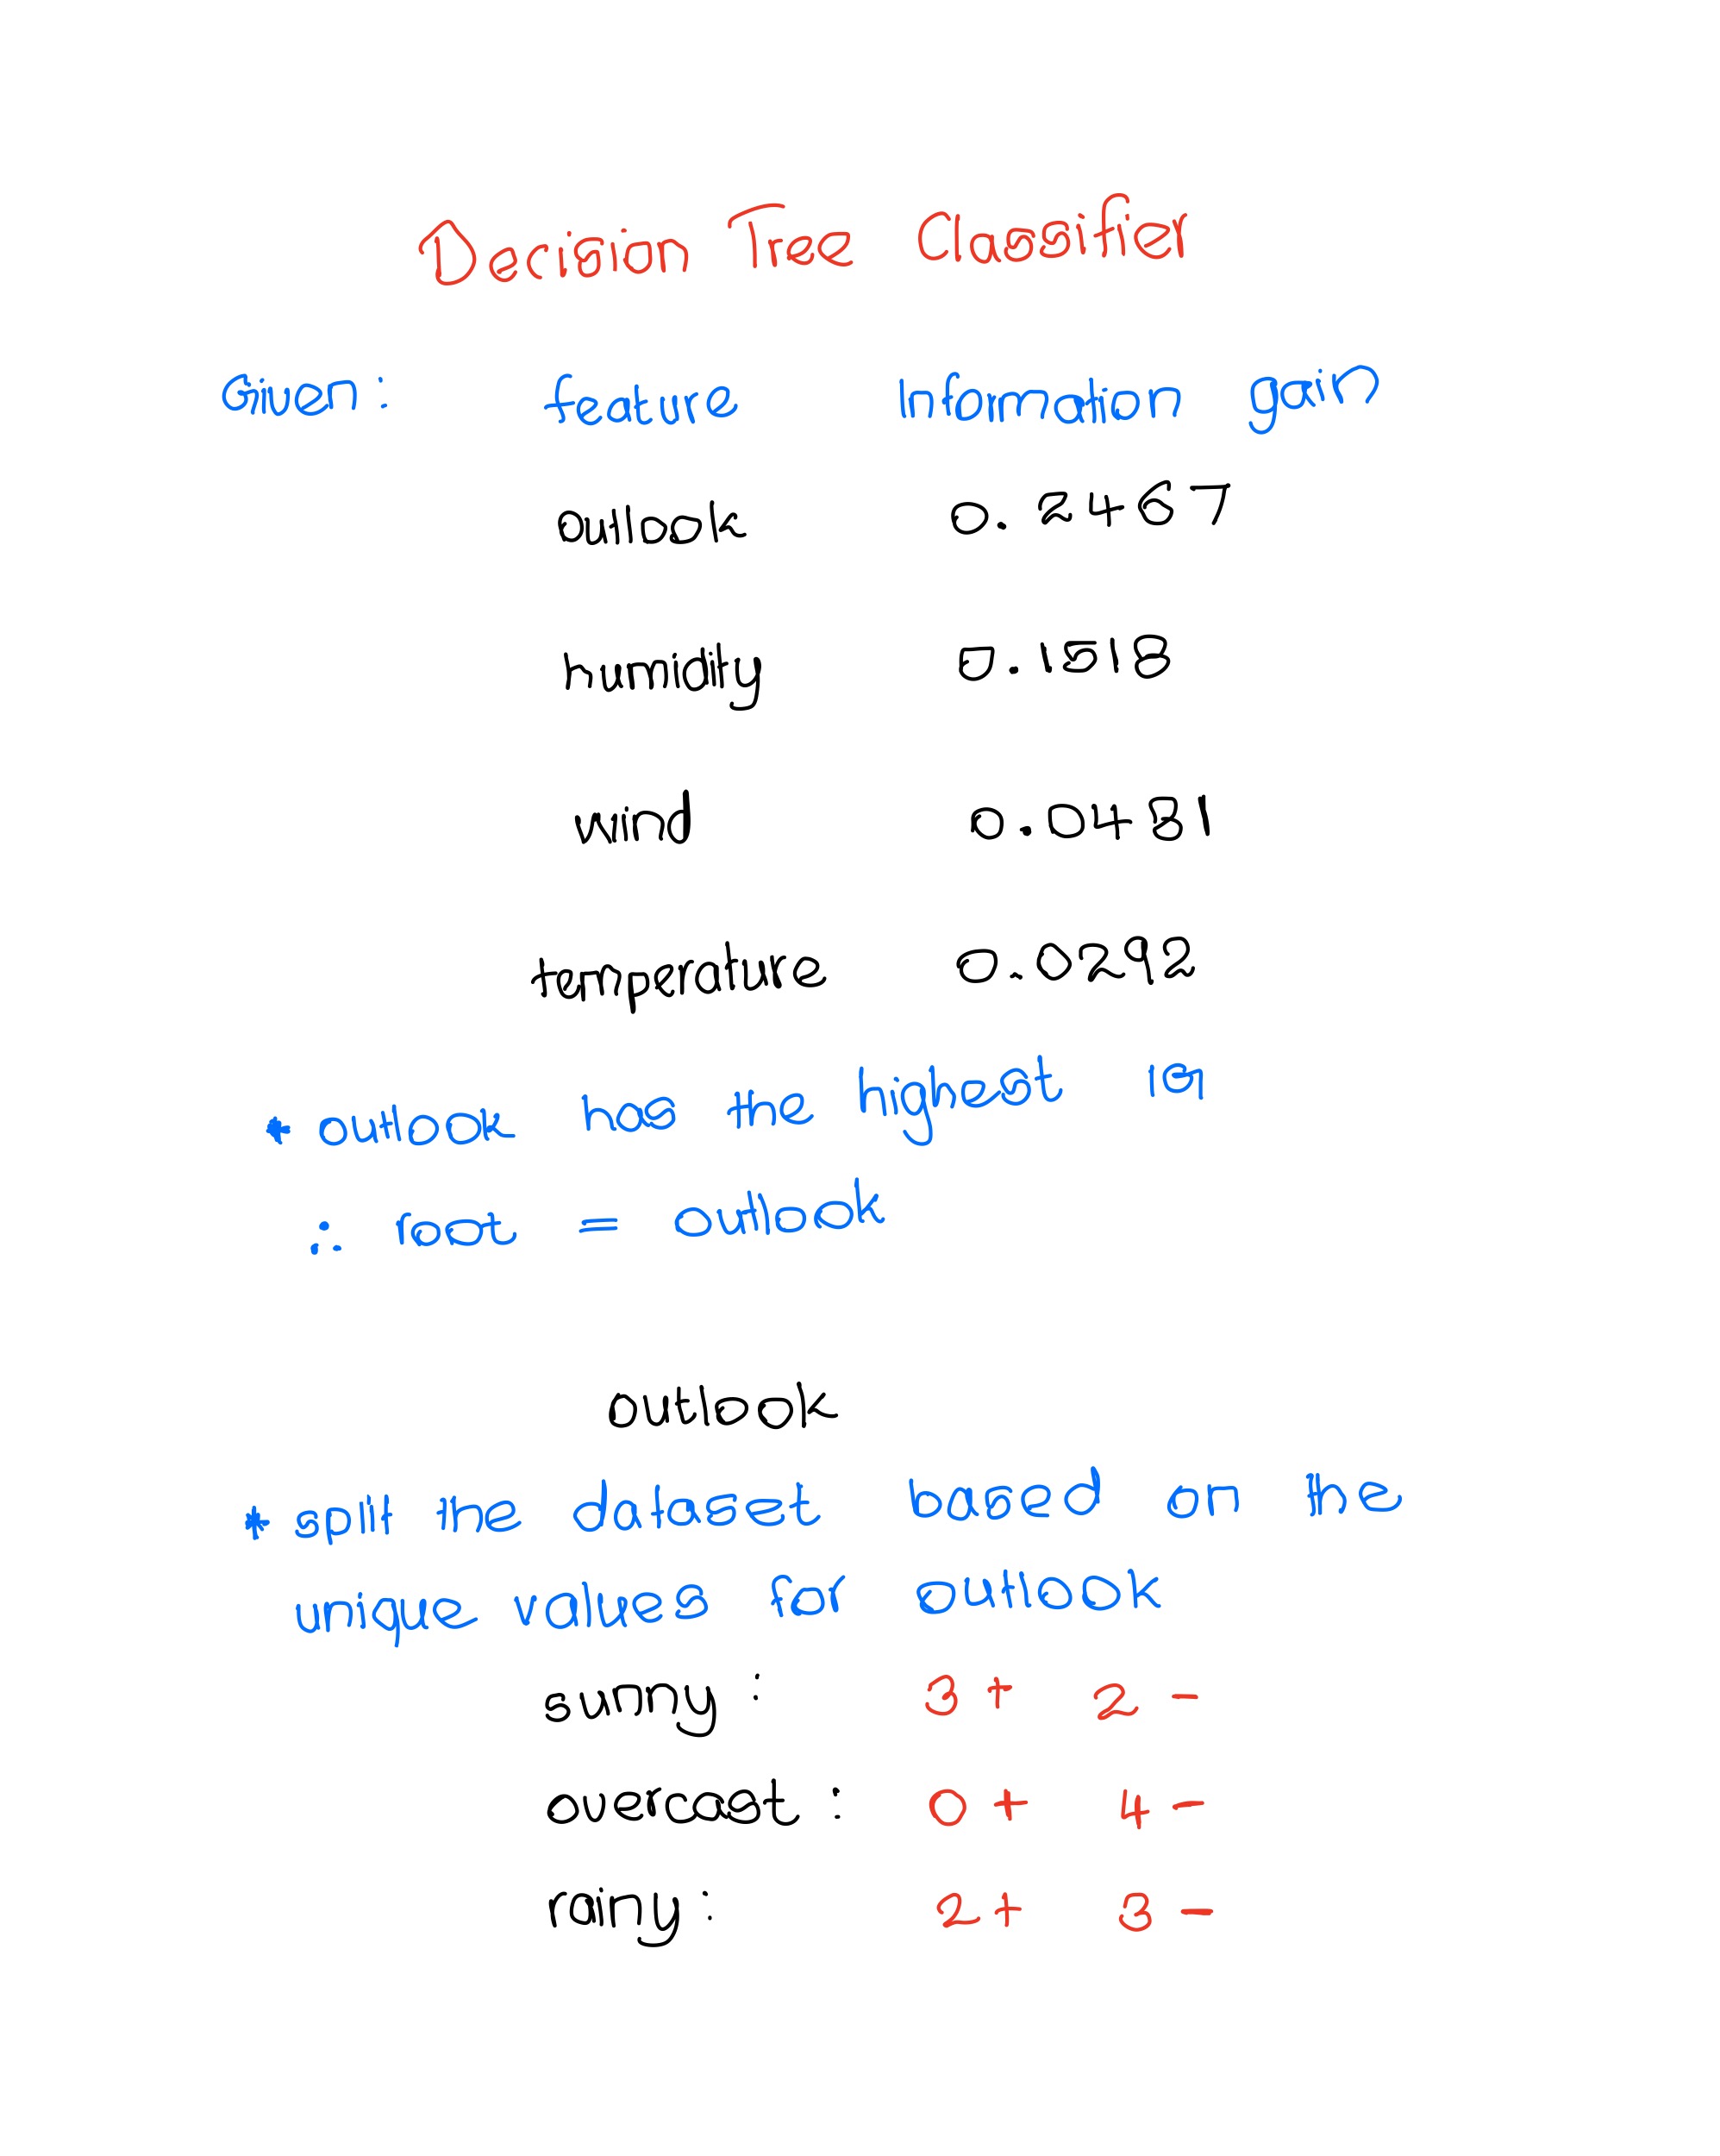 Decision Tree Classifier
Given: feature Information gain
outlook 0.2467
humidity 0.1518
wind 0.0481
temperature 0.0292
* outlook has the highest IG
∴ root = outlook
outlook
* split the dataset based on the
unique values for outlook
sunny: 3+ 2-
overcast: 0+ 4-
rainy: 2+ 3-